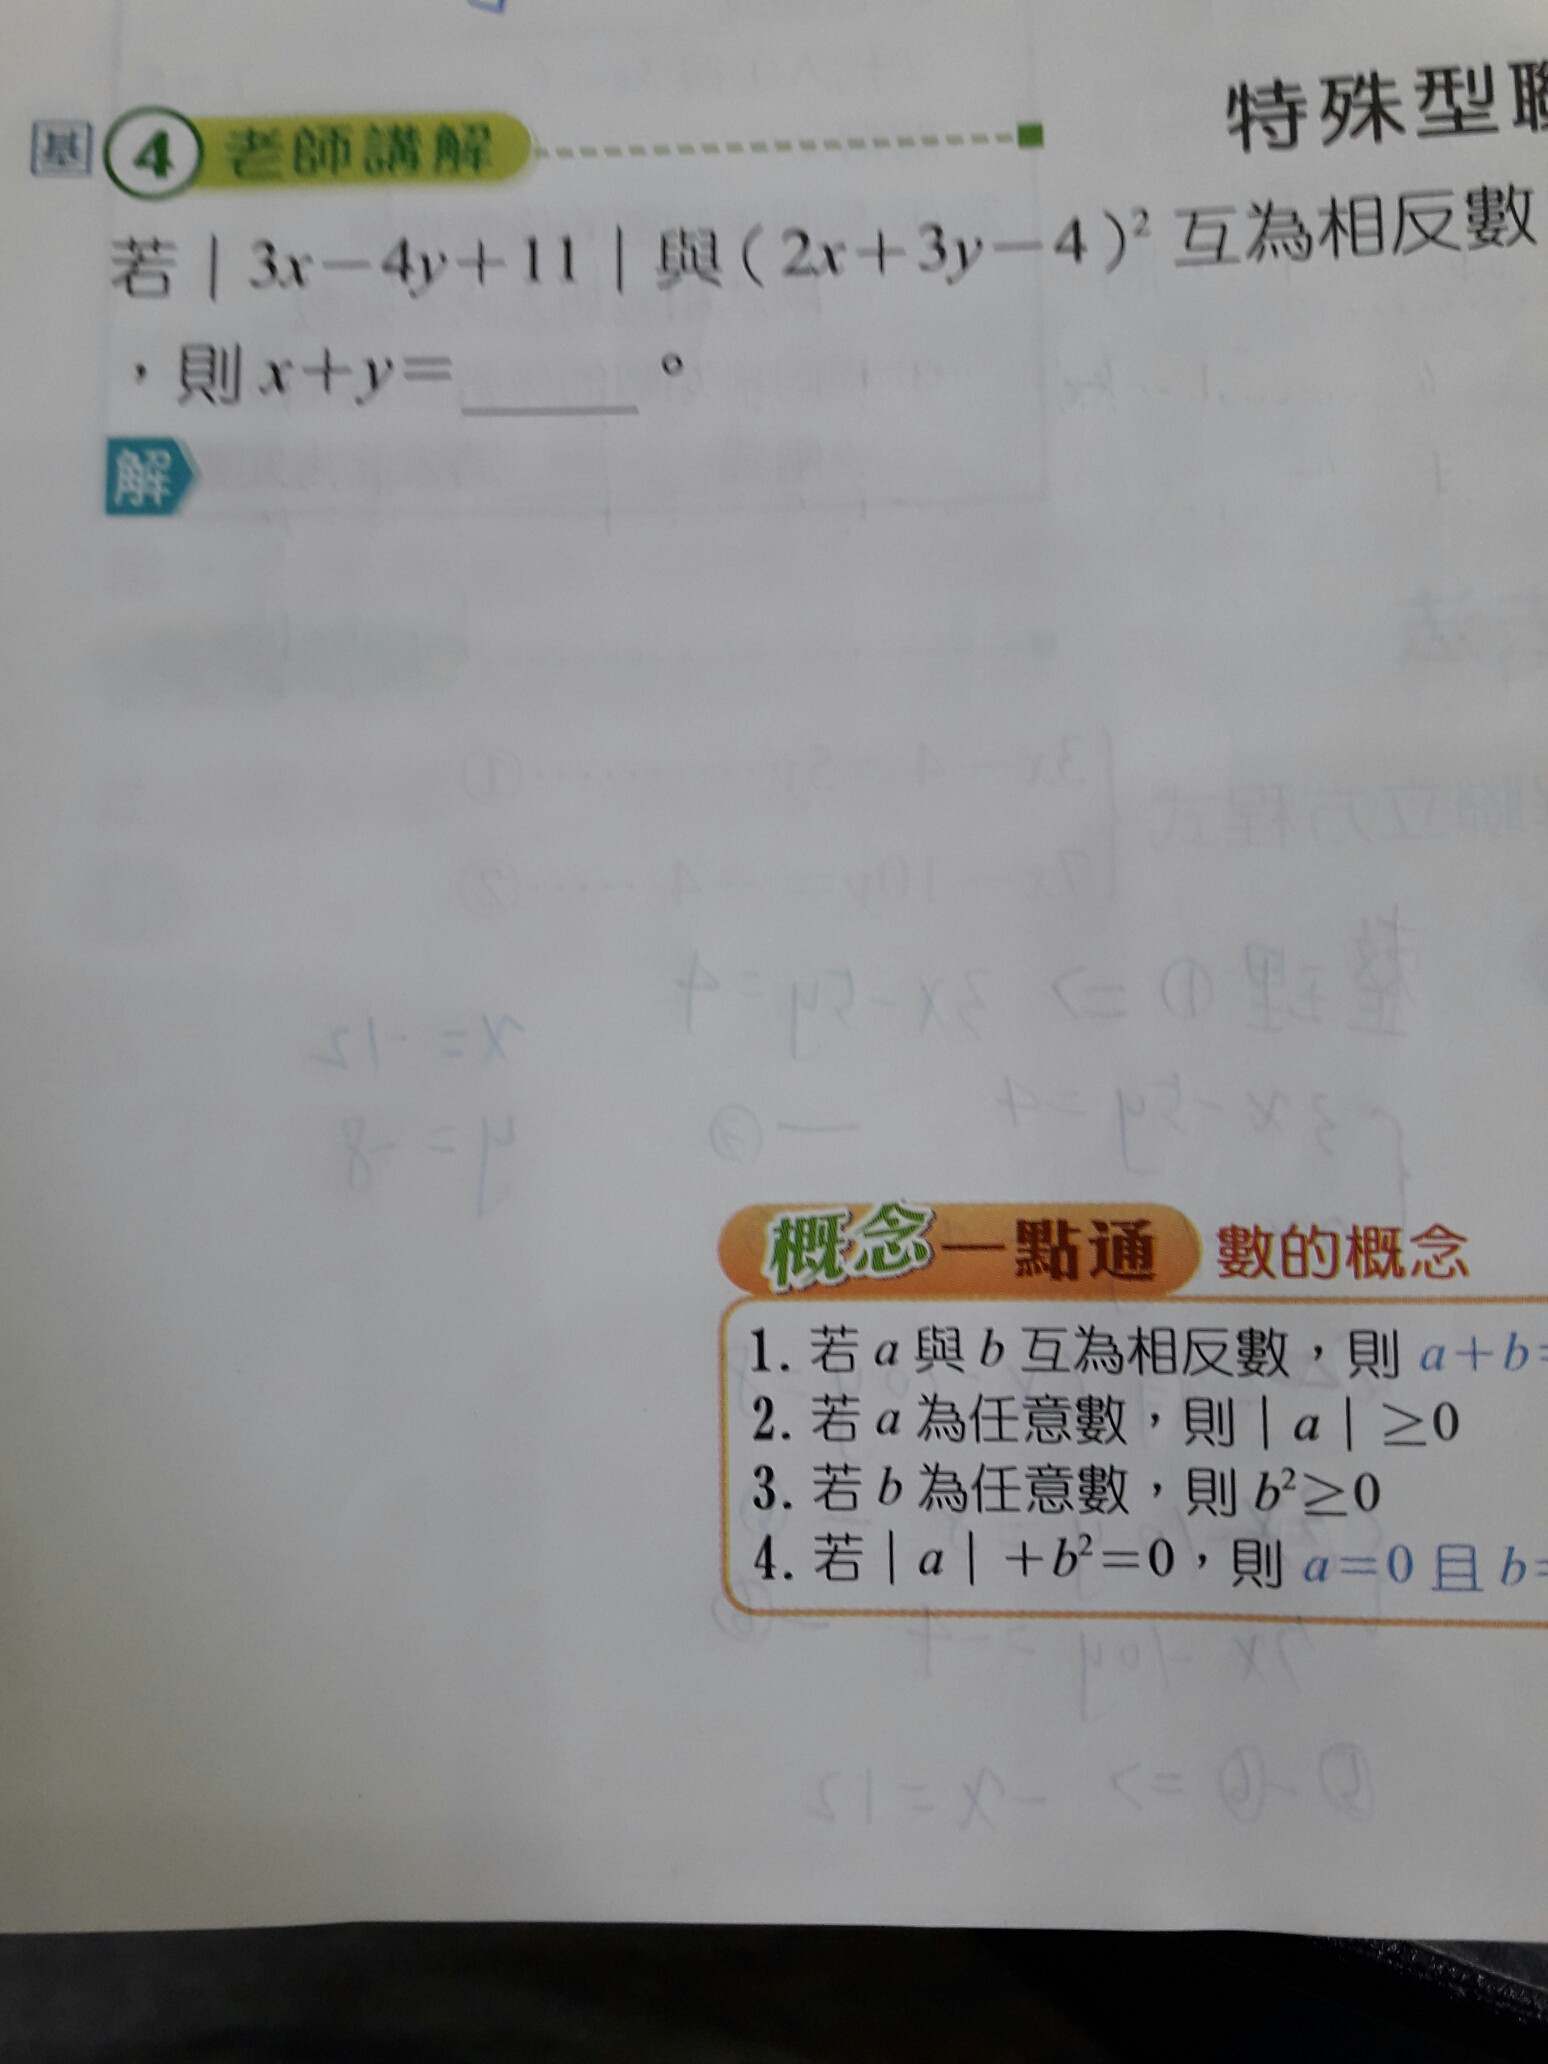 特殊型
基 4 老師講解
若｜3x－4y＋11｜與（2x＋3y－4）² 互為相反數
，則 x＋y＝______。
解
概念一點通 數的概念
1. 若 a 與 b 互為相反數，則 a＋b＝
2. 若 a 為任意數，則｜a｜≥0
3. 若 b 為任意數，則 b²≥0
4. 若｜a｜＋b²＝0，則 a＝0 且 b＝